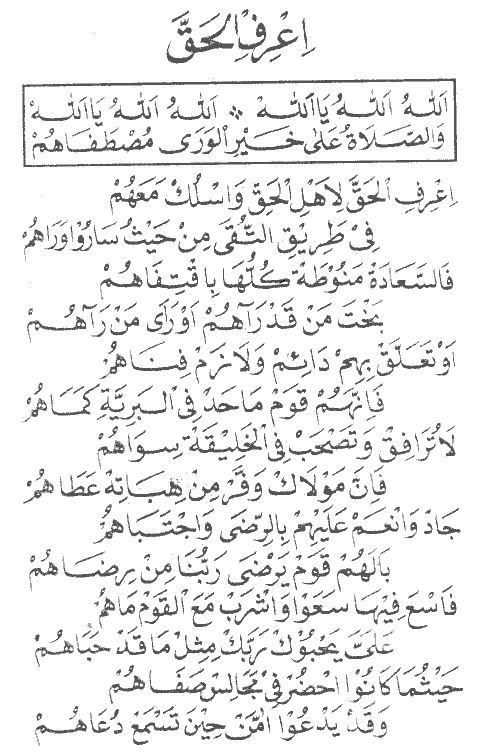 اِعْرِفِ الْحَقَّ
اَللهُ اَللهُ يَا اَللهْ * اَللهُ اَللهُ يَا اَللهْ
وَالصَّلَاةُ عَلَى خَيْرِ الْوَرَى مُصْطَفَاهُمْ
اِعْرِفِ الْحَقَّ لِاَهْلِ الْحَقِّ وَاسْلُكْ مَعَهُمْ
فِى طَرِيْقِ التُّقَى مِنْ حَيْثُ سَارُوْا وَرَاهُمْ
فَالسَّعَادَةْ مَنُوْطَةْ كُلُّهَا بِاقْتِفَاهُمْ
بَخْتَ مَنْ قَدْ رَآهُمْ اَوْ رَاَى مَنْ رَآهُمْ
اَوْ تَعَلَّقْ بِهِمْ دَائِمْ وَلَازَمْ فِنَاهُمْ
فَاِنَّهُمْ قَوْمْ مَا حَدْ فِى الْبَرِيَّةِ كَمَاهُمْ
لَا تُرَافِقْ وَتَصْحَبْ فِى الْخَلِيْقَةْ سِوَاهُمْ
فَاِنَّ مَوْلَاكْ وَفَّرْ مِنْ هِبَاتِهْ عَطَاهُمْ
جَادْ وَانْعَمْ عَلَيْهِمْ بِالرِّضَى وَاجْتَبَاهُمْ
يَالَهُمْ قَوْمْ يَرْضَى رَبُّنَا مِنْ رِضَاهُمْ
فَاسْعَ فِيْهَا سَعَوْا وَاشْرَبْ مَعَ الْقَوْمْ مَاهُمْ
عَلَىَّ يَحْبُوْكْ رَبَّكْ مِثْلَ مَا قَدْ حَبَاهُمْ
حَيْثُمَا كَانُوْا احْضُرْ فِى مَجَالِسْ صَفَاهُمْ
وَقَدْ يَدْعُوْا اٰمِّنْ حِيْنَ تَسْمَعْ دُعَاهُمْ